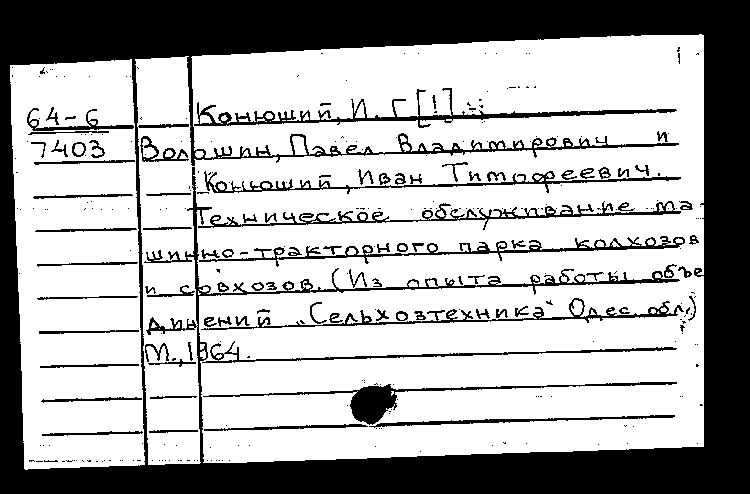 64-6 Конюший, И. Г [!]
7403 Волошин, Павел Владимирович и
Конюший, Иван Тимофеевич.
Техническое обслуживание ма-
шинно-тракторного парка колхозов
и совхозов. (Из опыта работы объе
динений „Сельхозтехника" Одес. обл.)
М., 1964.